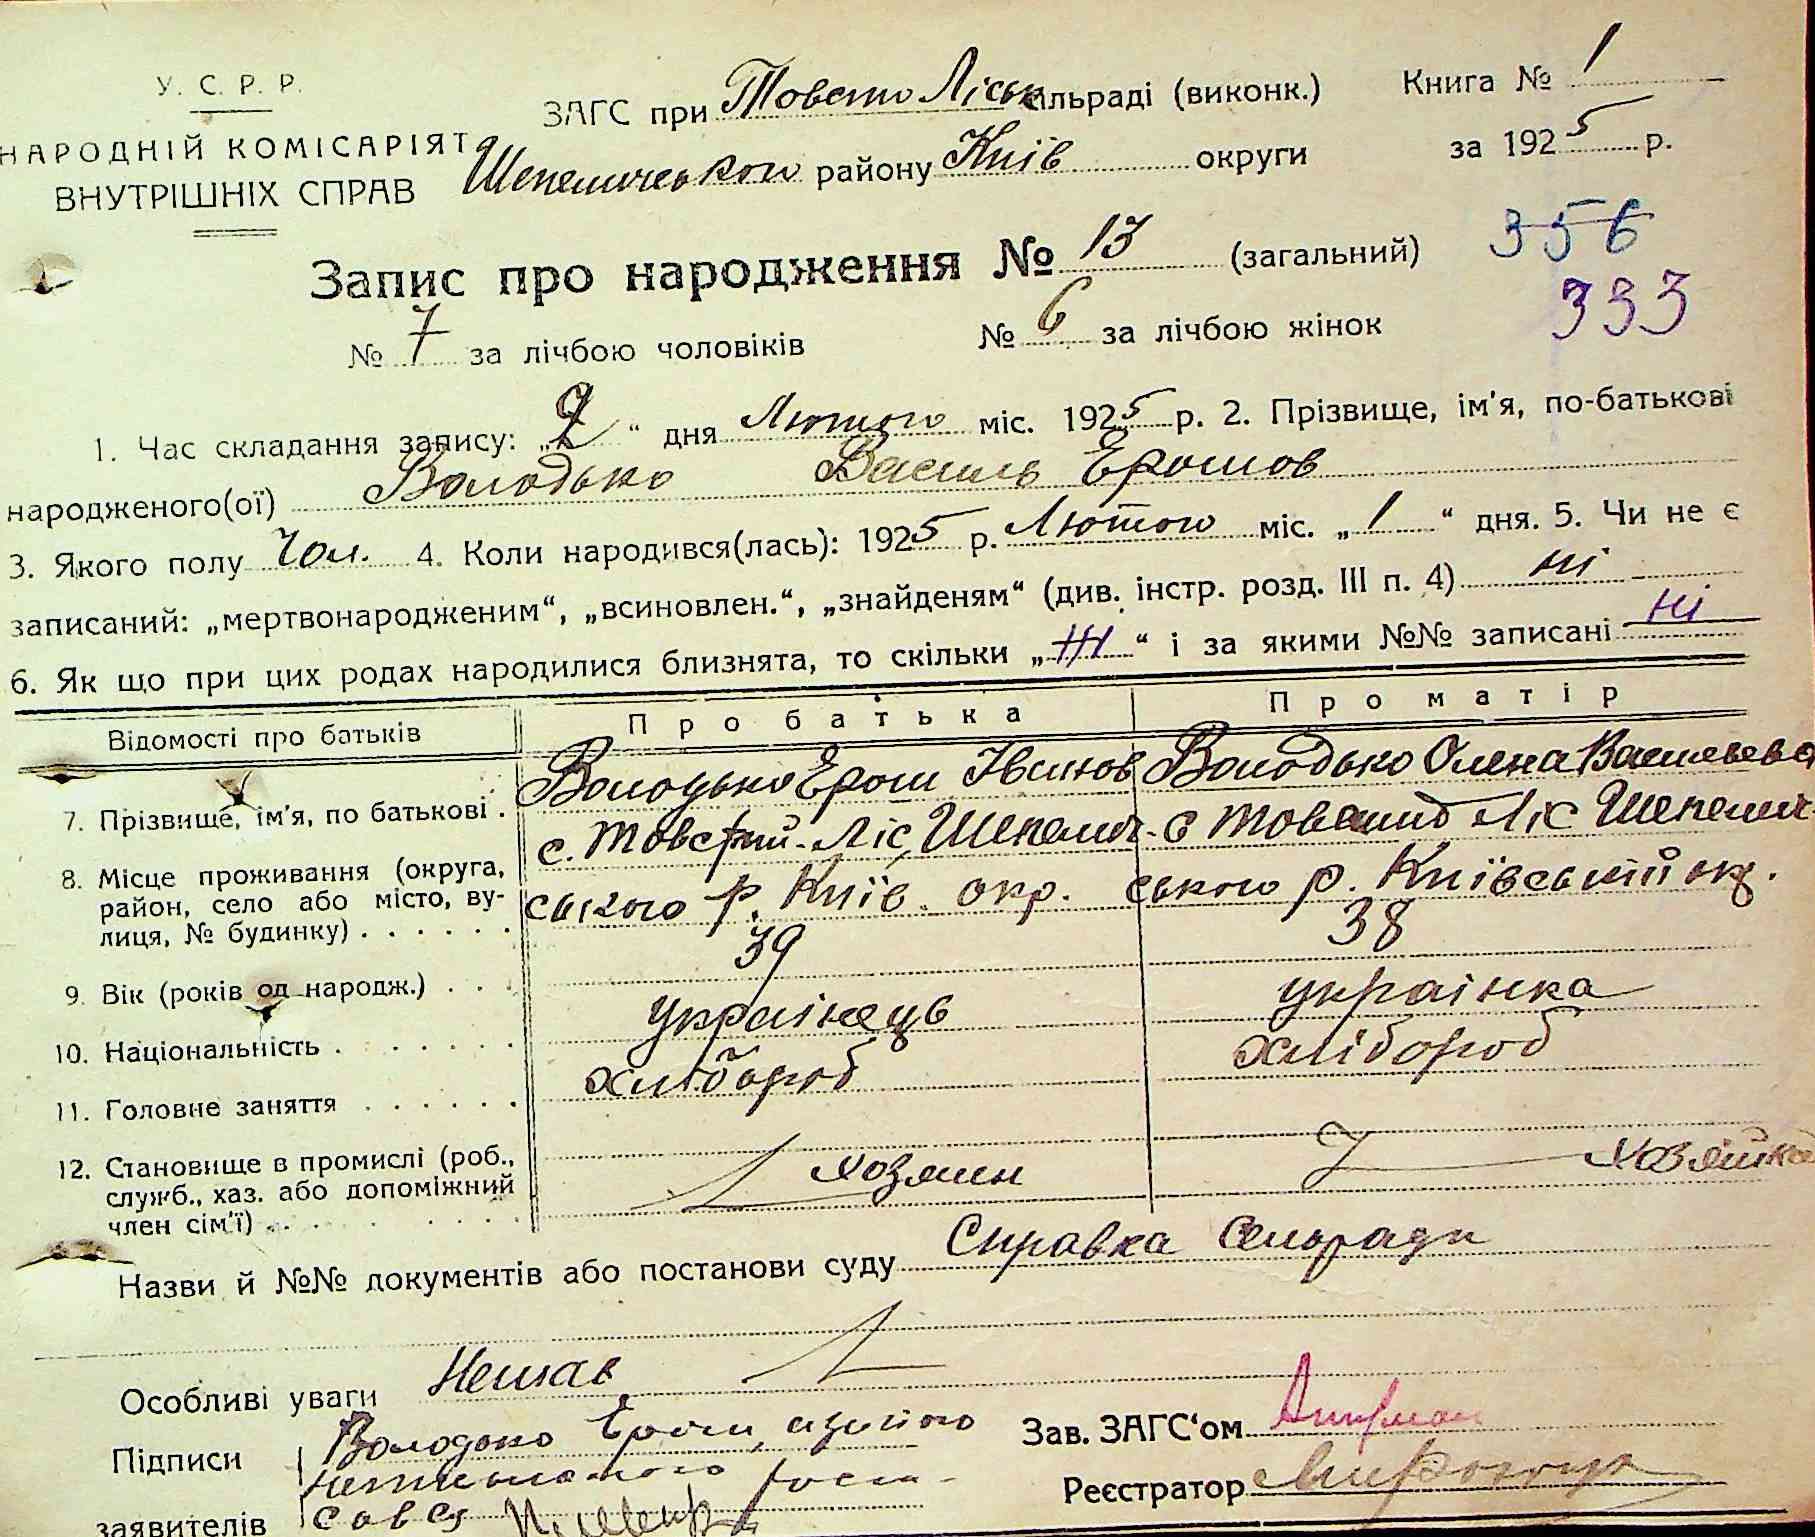 У. С. Р. Р.
НАРОДНІЙ КОМІСАРІЯТ
ВНУТРІШНІХ СПРАВ
ЗАГС при Товсто Ліськ сільраді (виконк.) Книга № 1
Шепелического району Київ округи за 1925 р.
Запис про народження № 13 (загальний) 356
333
№ 7 за лічбою чоловіків № 6 за лічбою жінок
1. Час складання запису: „ “ дня Лютого міс. 1925 р. 2. Прізвище, ім'я, по-батькові
народженого(ої) Володько Василь Ерошов
3. Якого полу Чол. 4. Коли народився(лась): 1925 р. Лютого міс. „1“ дня. 5. Чи не є
записаний: „мертвонародженим“, „всиновлен.“, „знайденям“ (див. інстр. розд. III п. 4) ні
6. Як що при цих родах народилися близнята, то скільки „ні“ і за якими №№ записані ні
Відомості про батьків Про батька Про матір
7. Прізвище, ім'я, по батькові . Володько Ерош Іванов Володько Олена Васильева
8. Місце проживання (округа, район, село або місто, ву-
лиця, № будинку) . . . . . .
с. Товстий-Ліс, Шепелич- с Товстий Ліс Шепелич-
ського р. Київ. окр. ського р. Київський ок.
9. Вік (років од народж.) . . . 39 38
10. Національність . . . . . . українець українка
11. Головне заняття . . . . . . хлібороб хлібороб
12. Становище в промислі (роб.,
служб., хаз. або допоміжний
член сім'ї) . . . . . . . хозяин хозяйка
Назви й №№ документів або постанови суду Справка Сельради
Особливі уваги Немає
Підписи
заявителів
Володько Ерош, а за його
неписьменного роспи-
савея
Зав. ЗАГС‘ом
Реєстратор